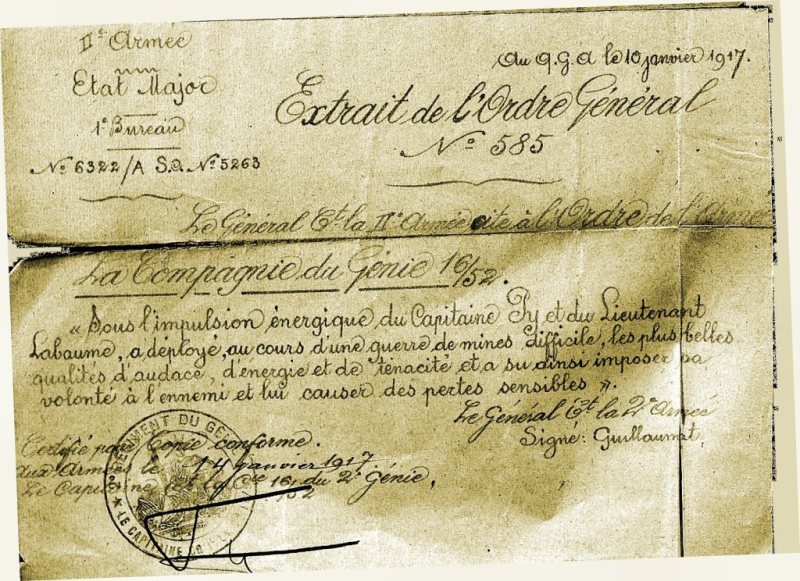 IIe Armée
Etat Major
1e Bureau
No 6322/A S.O. No 5263
Au Q.G.A le 10 janvier 1917.
Extrait de l'Ordre Général
No 585
Le Général Ct la IIe Armée cite à l'Ordre de l'Armée
La Compagnie du Génie 16/52.
« Sous l'impulsion énergique du Capitaine Py et du Lieutenant
Labaume, a déployé, au cours d'une guerre de mines difficile, les plus belles
qualités d'audace, d'énergie et de ténacité et a su ainsi imposer sa
volonté à l'ennemi et lui causer des pertes sensibles ».
Le Général Ct la 2e Armée
Signé: Guillaumat
Certifié pour Copie conforme.
aux Armées le 14 janvier 1917
Le Capitaine Ct la Cie 16/52 du 2e Génie.
LE CAPITAINE